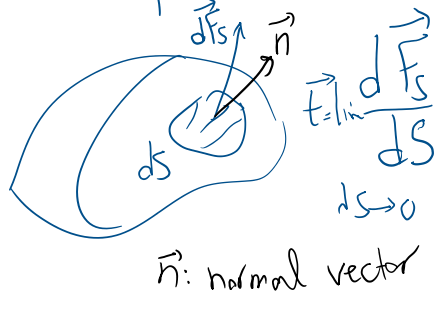 dF⃗s
n⃗
dS
t⃗ = lim dF⃗s / dS
dS → 0
n⃗: normal vector